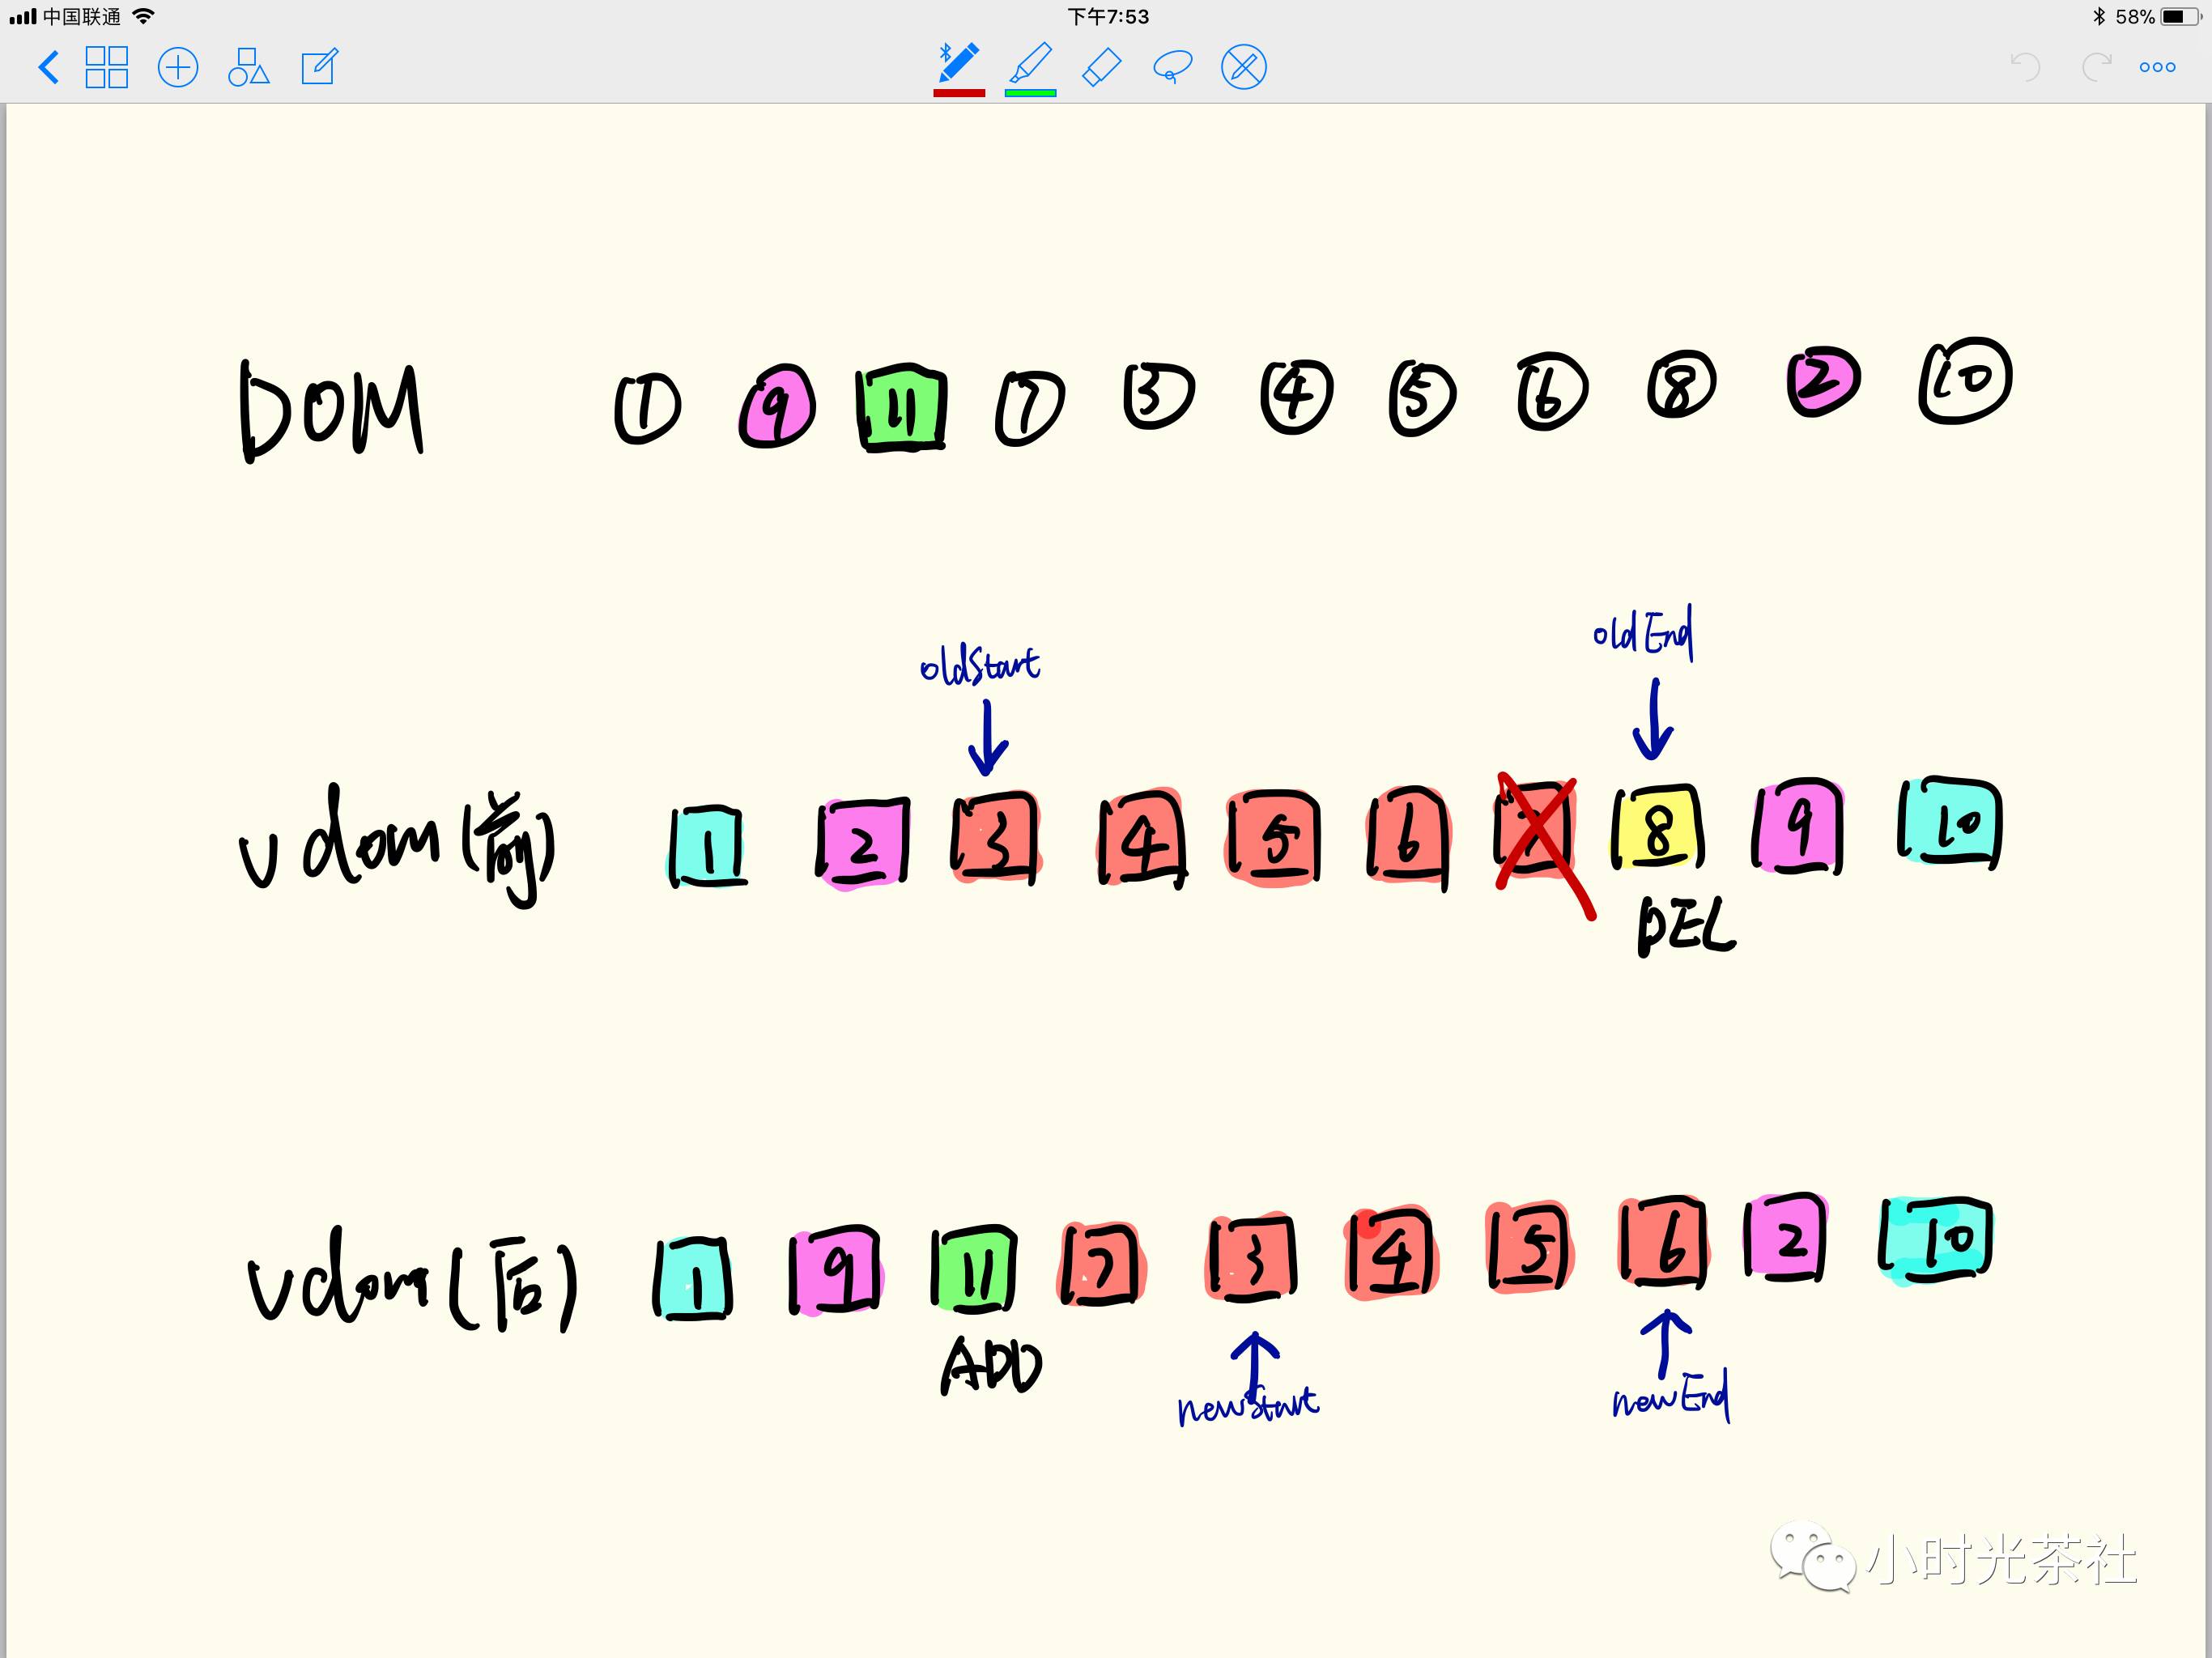 中国联通 下午7:53 58%
DOM 1 9 11 7 3 4 5 6 8 2 10
oldStart oldEnd
vdom(前) 1 2 3 4 5 6 8 9 10
DEL
vdom(后) 1 9 11 7 3 4 5 6 2 10
ADD
newStart newEnd
小时光茶社